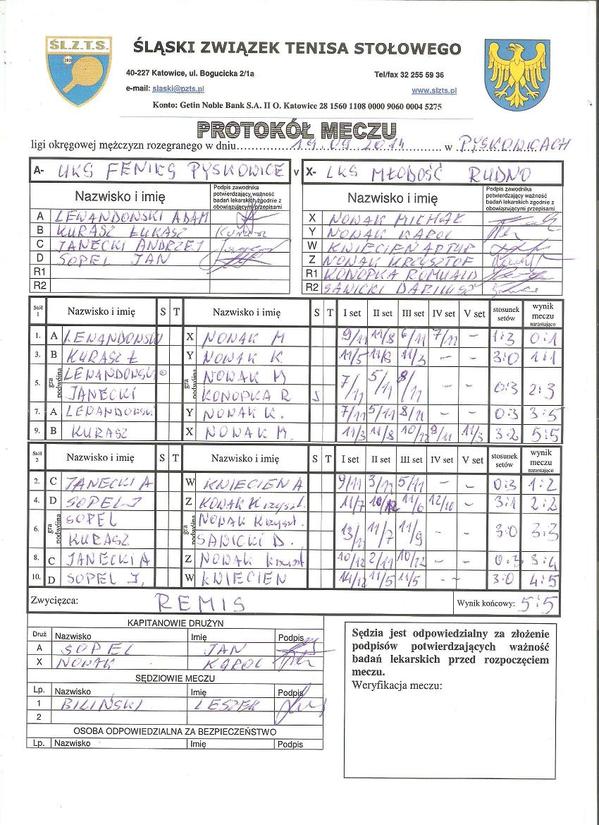 ŚL.Z.T.S.
ŚLĄSKI ZWIĄZEK TENISA STOŁOWEGO
40-227 Katowice, ul. Bogucicka 2/1a Tel/fax 32 255 59 36
e-mail: slaski@pzts.pl www.slzts.pl
Konto: Getin Noble Bank S.A. II O. Katowice 28 1560 1108 0000 9060 0004 5275
PROTOKÓŁ MECZU
ligi okręgowej mężczyzn rozegranego w dniu 19.09.2014 w PYSKOWICACH
A- UKS FENIKS PYSKOWICE v X- LKS MŁODOŚĆ RUDNO
Nazwisko i imię Podpis zawodnika potwierdzający ważność badań lekarskich zgodnie z obowiązującymi przepisami Nazwisko i imię Podpis zawodnika potwierdzający ważność badań lekarskich zgodnie z obowiązującymi przepisami
A LEWANDOWSKI ADAM X NOWAK MICHAŁ
B KURASZ ŁUKASZ Y NOWAK KAROL
C JANECKI ANDRZEJ W KWIECIEŃ ARTUR
D SOPEL JAN Z NOWAK KRZYSZTOF
R1 R1 KONOPKA ROMUALD
R2 R2 SANICKI DARIUSZ
Stół 1 Nazwisko i imię S T Nazwisko i imię S T I set II set III set IV set V set stosunek setów wynik meczu narastająco
1. A LEWANDOWSKI X NOWAK M 9/11 11/8 6/11 7/11 - 1:3 0:1
3. B KURASZ Ł Y NOWAK K 11/5 11/8 11/3 - - 3:0 1:1
5. gra podwójna LEWANDOWSKI JANECKI gra podwójna NOWAK M KONOPKA R 7/11 5/11 8/11 0:3 2:3
7. A LEWANDOWSKI Y NOWAK K. 7/11 5/11 8/11 - - 0:3 3:5
9. B KURASZ X NOWAK M. 11/3 11/8 10/12 9/11 11/3 3:2 5:5
Stół 2 Nazwisko i imię S T Nazwisko i imię S T I set II set III set IV set V set stosunek setów wynik meczu narastająco
2. C JANECKI A W KWIECIEŃ A 9/11 3/11 5/11 - - 0:3 1:2
4. D SOPEL J Z NOWAK Krzyszt. 11/7 10/12 11/6 12/10 - 3:1 2:2
6. gra podwójna SOPEL KURASZ gra podwójna NOWAK Krzyszt. SANICKI D. 13/11 11/7 11/9 3:0 3:3
8. C JANECKI A Z NOWAK Krzyszt 10/12 2/11 10/12 - - 0:3 3:4
10. D SOPEL J. W KWIECIEŃ 14/12 11/5 11/5 - - 3:0 4:5
Zwycięzca: REMIS Wynik końcowy: 5:5
KAPITANOWIE DRUŻYN
Druż Nazwisko Imię Podpis
A SOPEL JAN
X NOWAK KAROL
SĘDZIOWIE MECZU
Lp. Nazwisko Imię Podpis
1 BILIŃSKI LESZEK
2
OSOBA ODPOWIEDZIALNA ZA BEZPIECZEŃSTWO
Lp. Nazwisko Imię Podpis
Sędzia jest odpowiedzialny za złożenie
podpisów potwierdzających ważność
badań lekarskich przed rozpoczęciem
meczu.
Weryfikacja meczu: